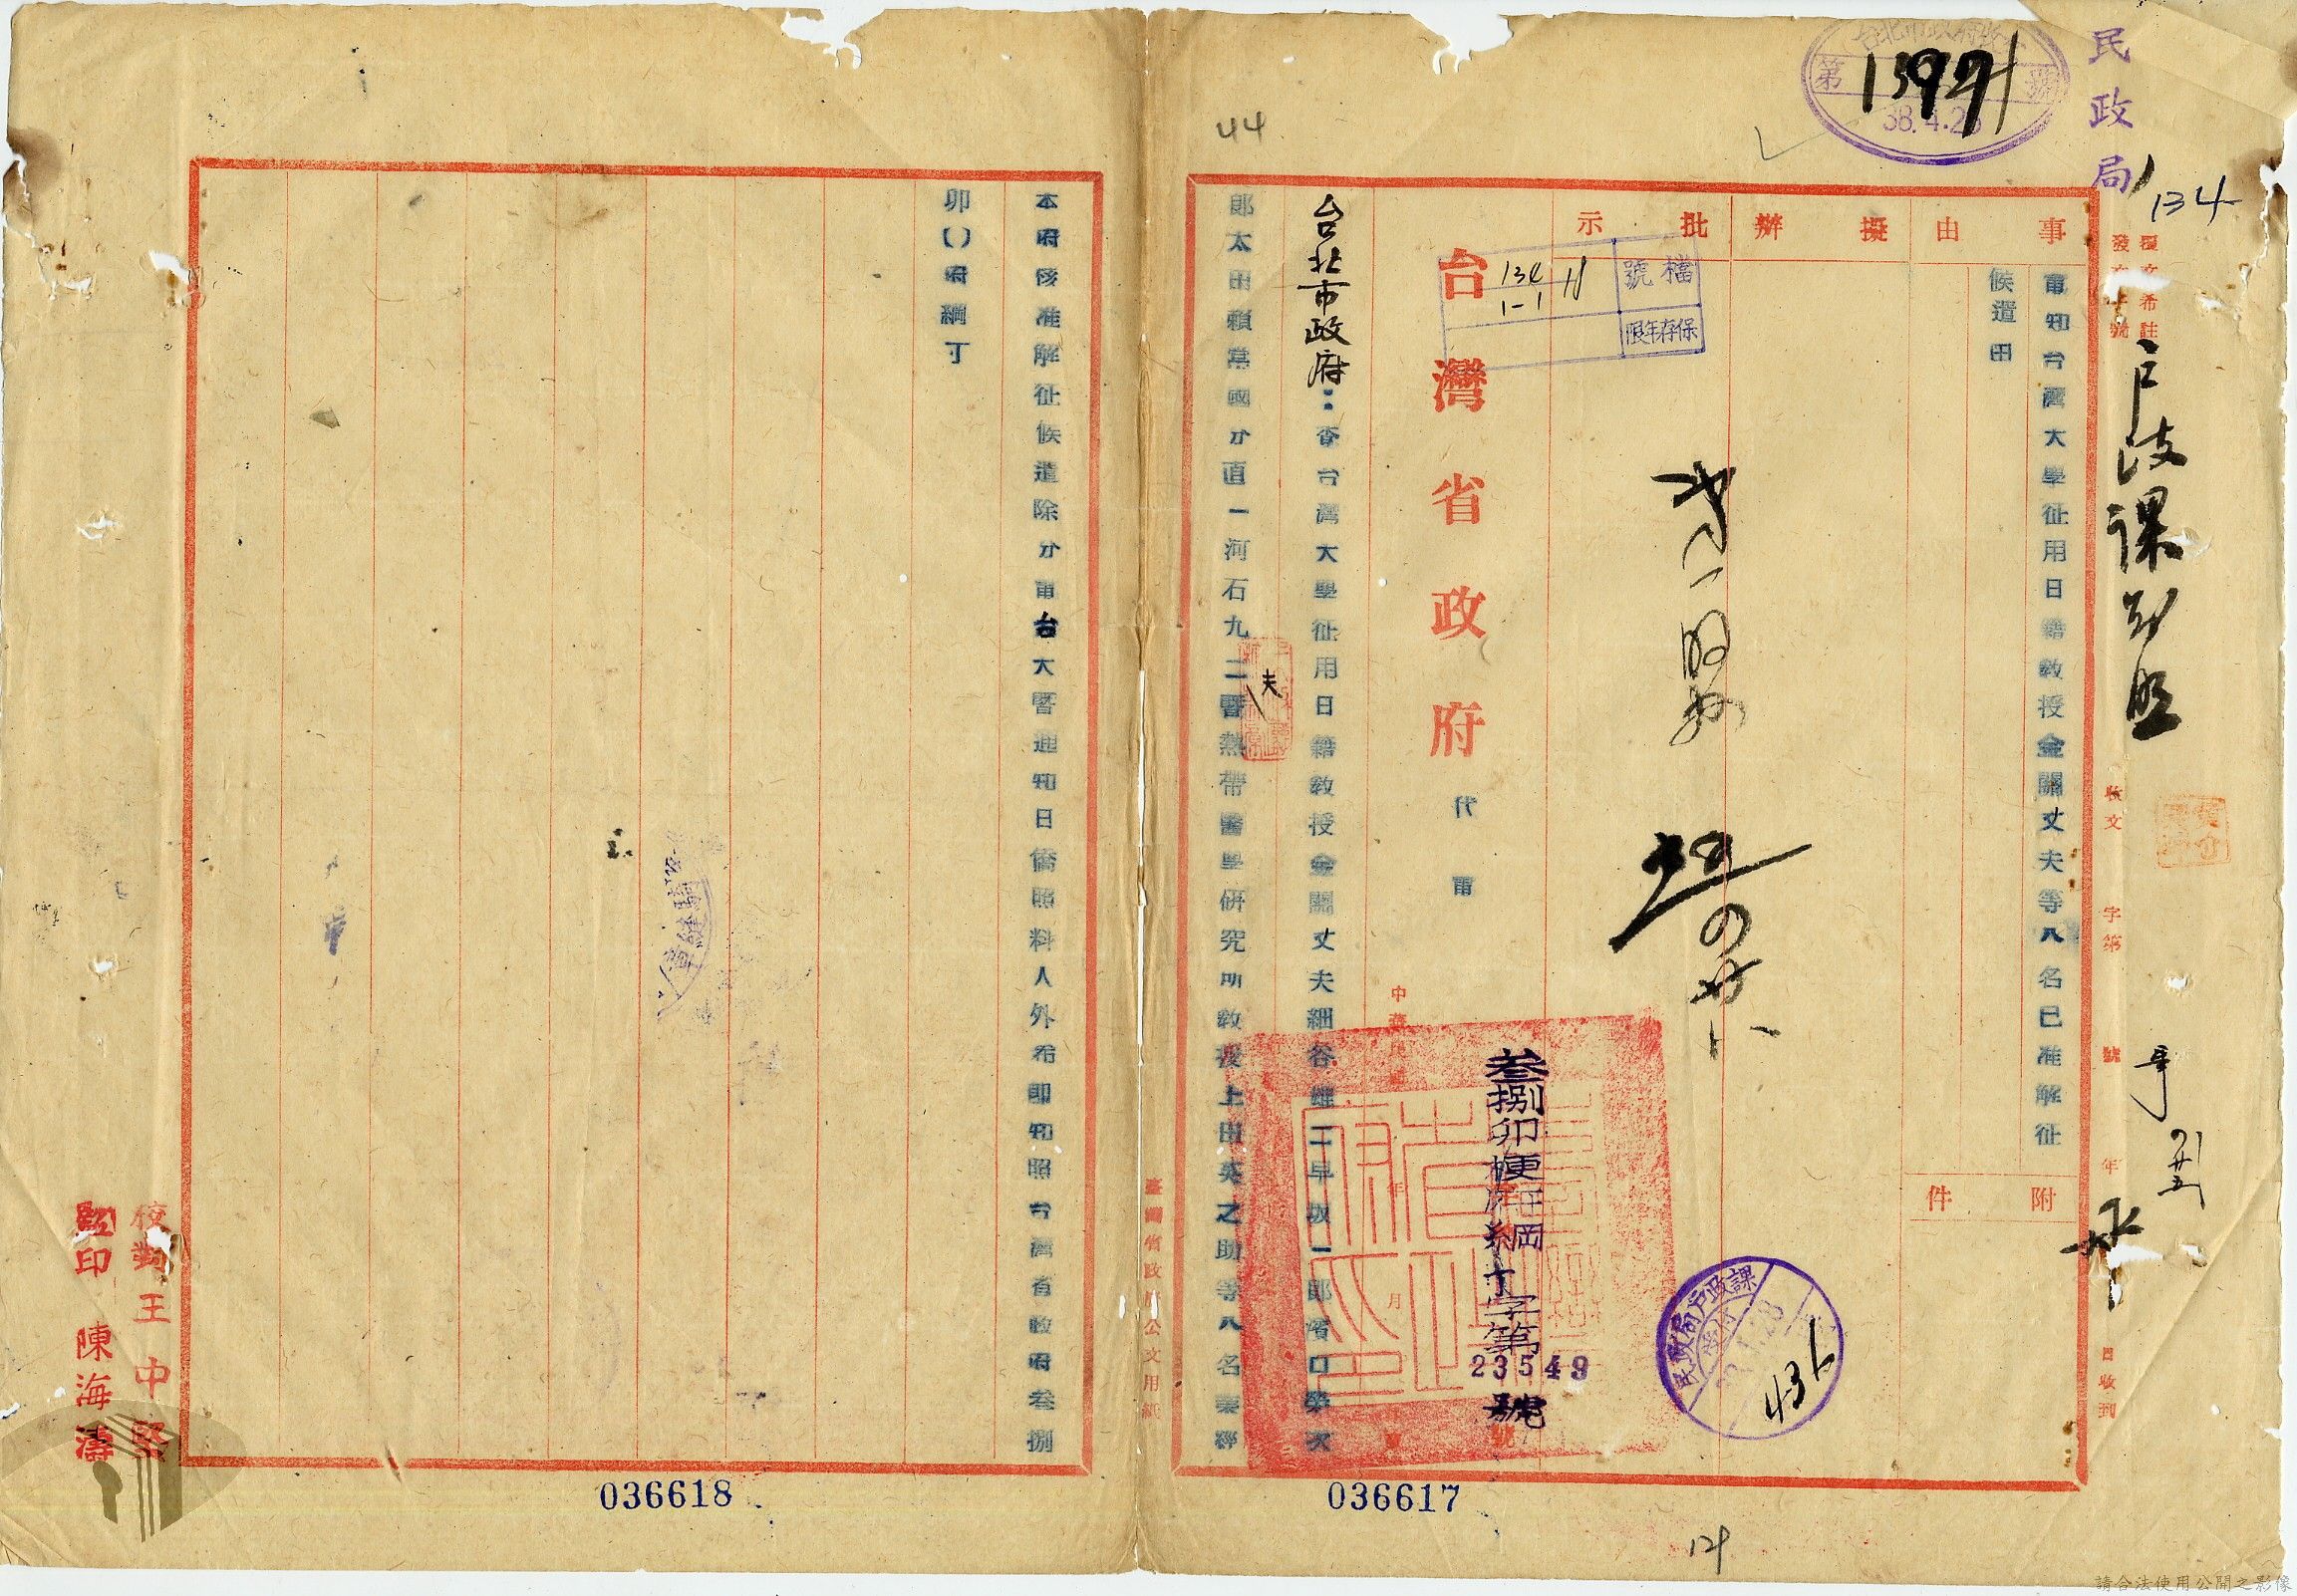 民政局
134
台北市政府收文
第 13971 號
38.4.28
覆文希註
發文字號
戶政課
收文 字第 號 年 月 日收到
事由
電知台灣大學征用日籍教授金關丈夫等八名已准解征
候遣由
附件
擬辦
批示
檔號
134
1-1
保存年限
民政局戶政課
台灣省政府
代電
中華民國 年 月 日
叁捌卯梗府綱丁字第
23549
號
台北市政府：查台灣大學征用日籍教授金關丈夫細谷雄二早坂一郎濱口榮次
郎太田賴常國分直一河石九二暨熱帶醫學研究所教授上田英之助等八名業經
夫
44
臺灣省政府公文用紙
036617
本府核准解征候遣除分電台大暨通知日僑照料人外希即知照台灣省政府叁捌
卯()府綱丁
騎縫章
校對 王中堅
監印 陳海濤
036618
請合法使用公開之影像